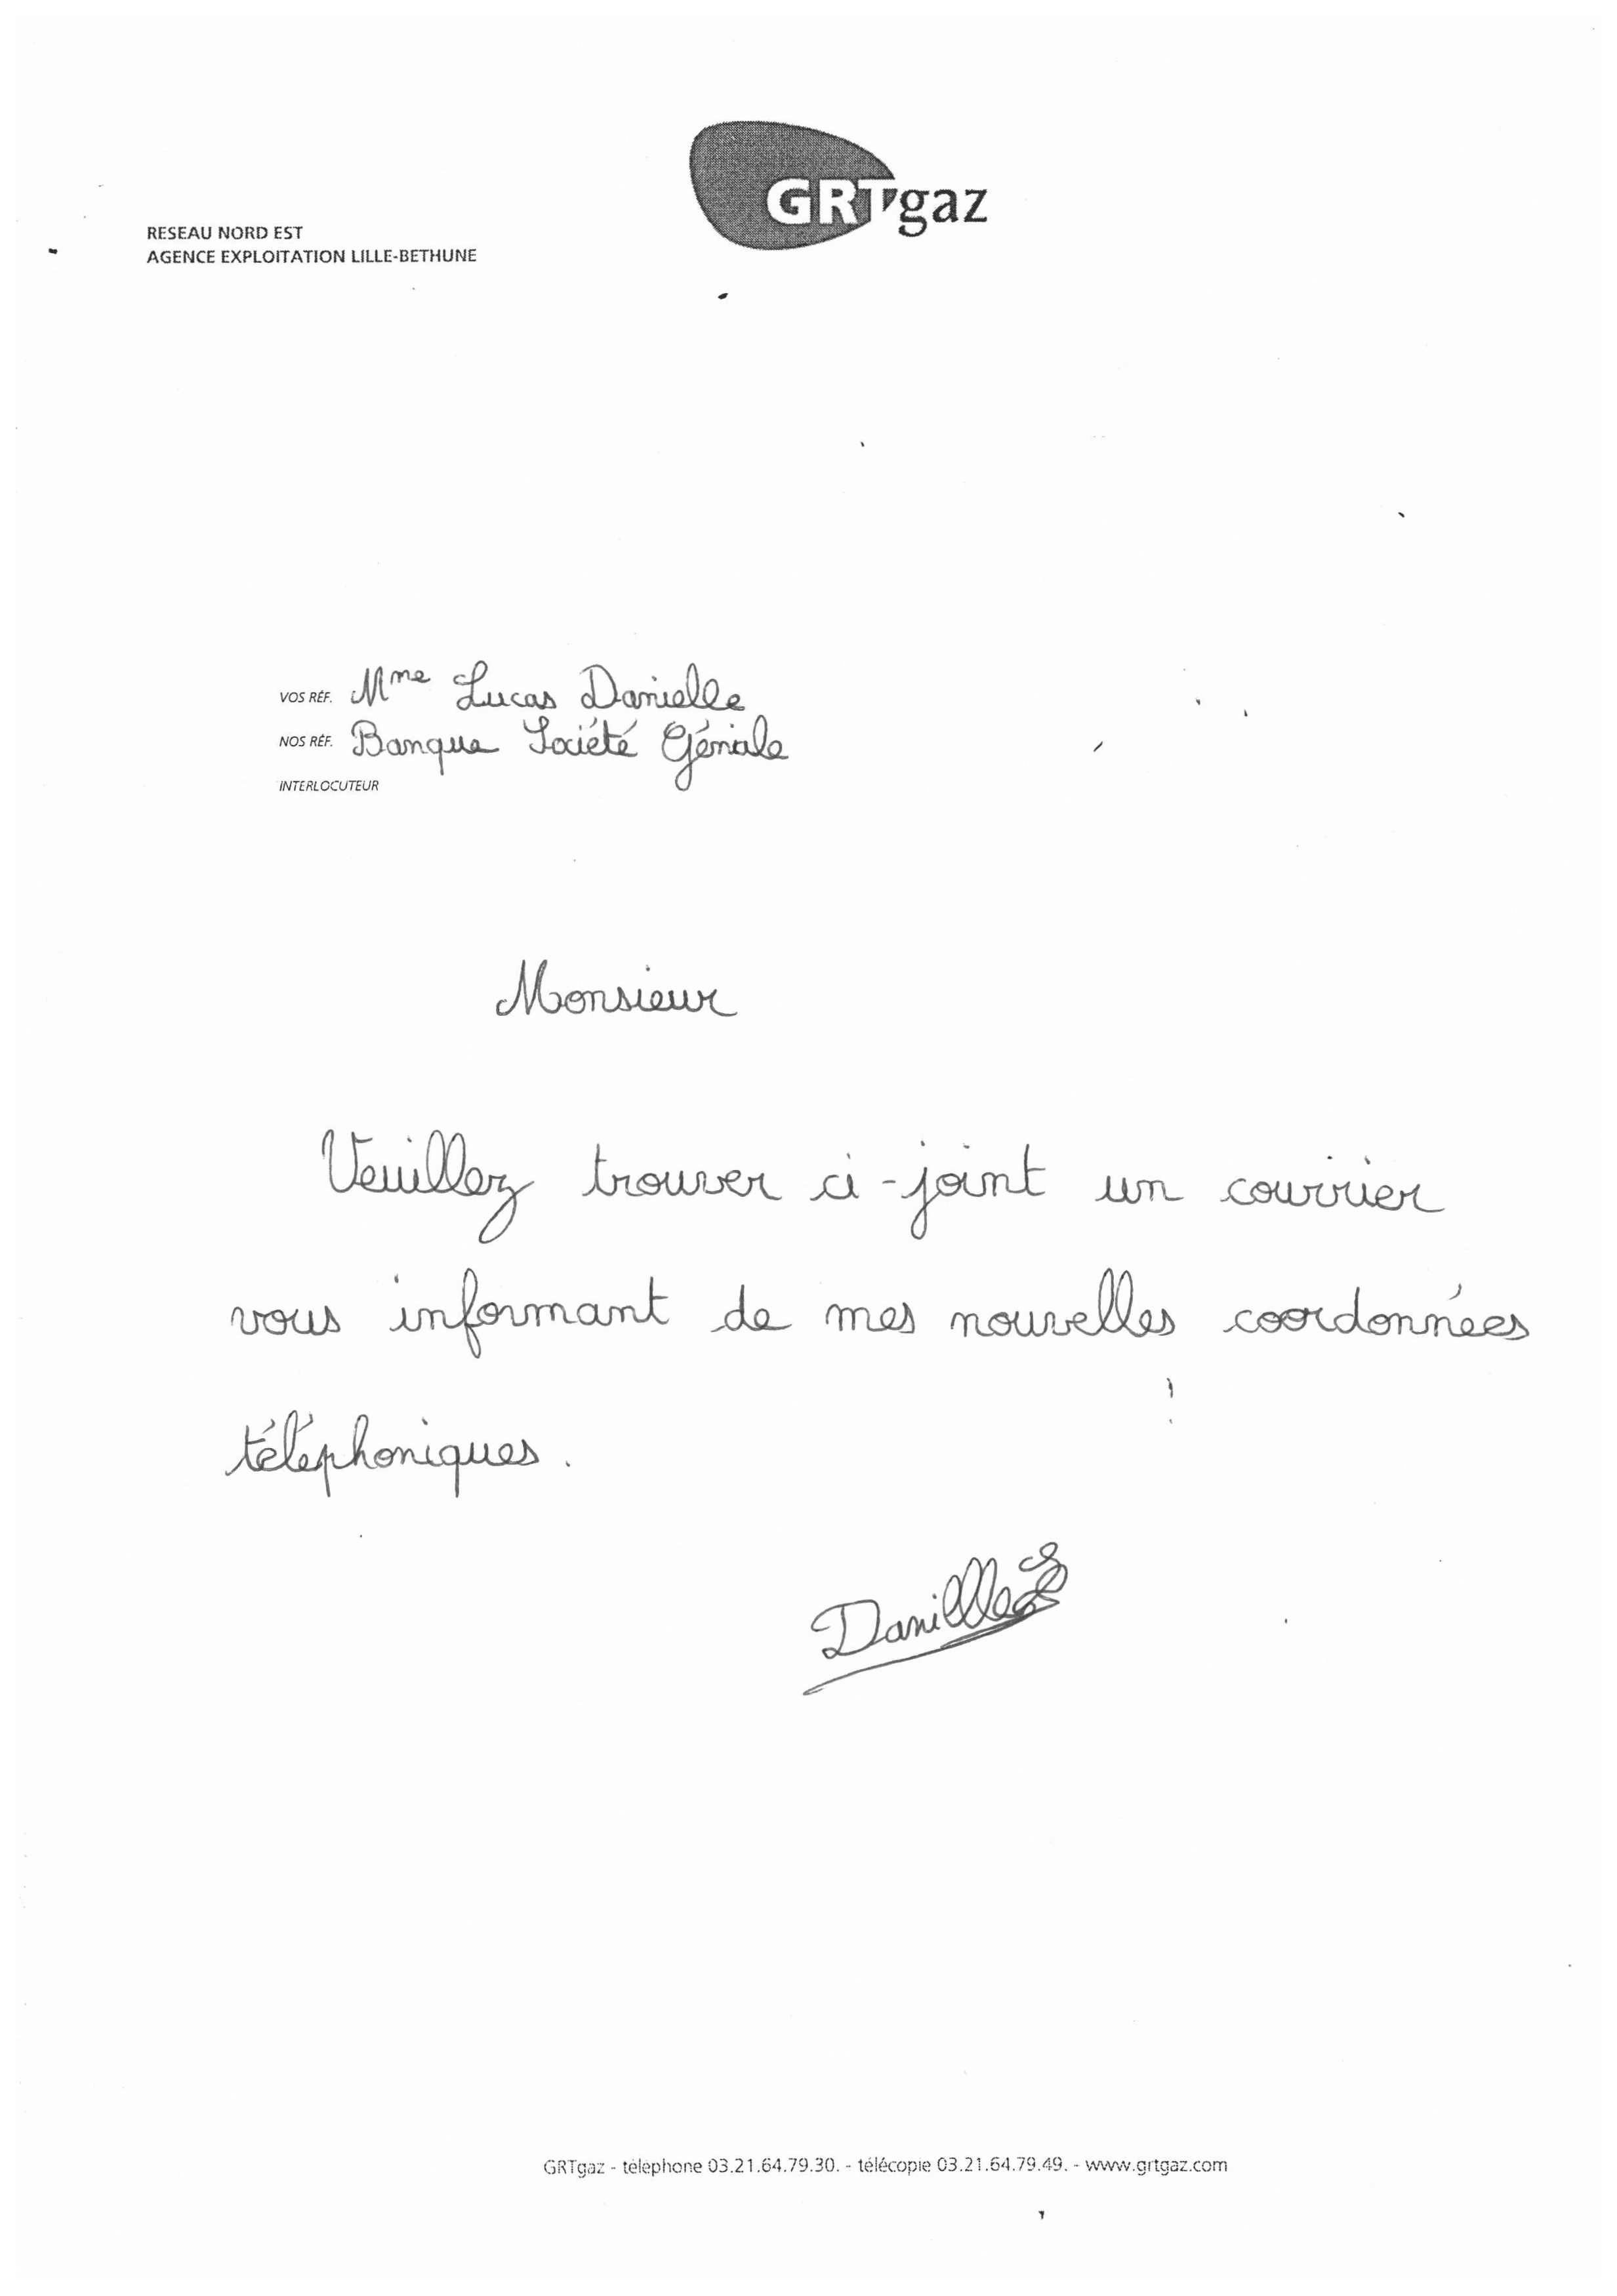 GRTgaz
RESEAU NORD EST
AGENCE EXPLOITATION LILLE-BETHUNE
VOS RÉF. Mme Lucas Danielle
NOS RÉF. Banque Société Géniale
INTERLOCUTEUR
Monsieur
Veuillez trouver ci-joint un courrier
vous informant de mes nouvelles coordonnées
téléphoniques.
Danillle
GRTgaz - téléphone 03.21.64.79.30. - télécopie 03.21.64.79.49. - www.grtgaz.com